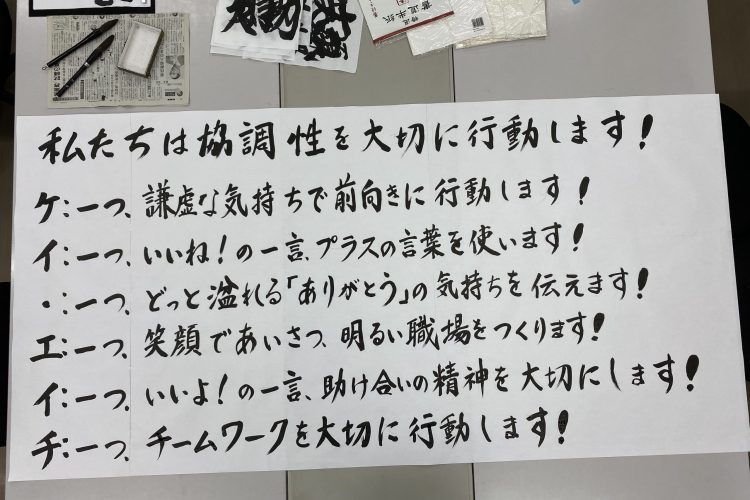 私たちは協調性を大切に行動します!
ケ:一つ、謙虚な気持ちで前向きに行動します!
イ:一つ、いいね!の一言、プラスの言葉を使います!
・:一つ、どっと溢れる「ありがとう」の気持ちを伝えます!
エ:一つ、笑顔であいさつ、明るい職場をつくります!
イ:一つ、いいよ!の一言、助け合いの精神を大切にします!
チ:一つ、チームワークを大切に行動します!